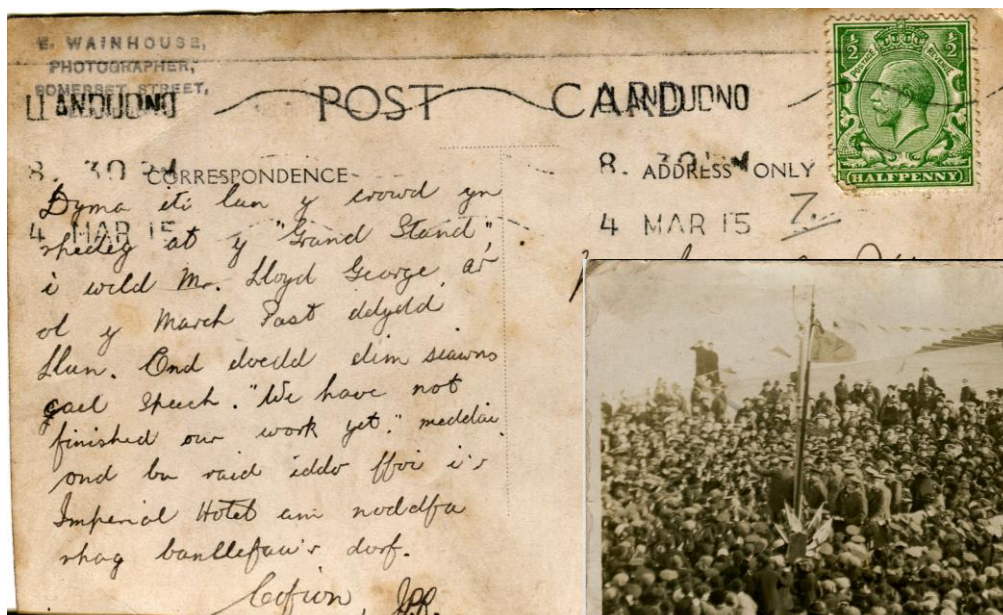 E. WAINHOUSE,
PHOTOGRAPHER,
SOMERSET STREET,
LLANDUDNO
POST CARD
LLANDUDNO
LLANDUDNO
8. 30 PM
8. 30 PM
4 MAR 15
4 MAR 15
CORRESPONDENCE
ADDRESS ONLY
1/2 1/2
POSTAGE REVENUE
HALFPENNY
7.
Dyma iti lun y crowd yn
rhedeg at y "Grand Stand",
i weld Mr. Lloyd George, ar
ol y March Past ddydd
Llun. Ond doedd dim siawns
gael speech. "We have not
finished our work yet." meddai
ond bu raid iddo ffoi i'r
Imperial Hotel am noddfa
rhag banllefau'r dorf.
Cofion, JRR.